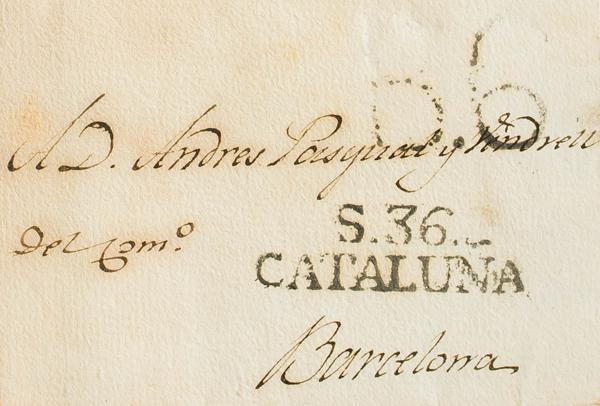 D.6
A D. Andres Pasqual y Vindreu
Del Com.º
S.36.
CATALUNA
Barcelona